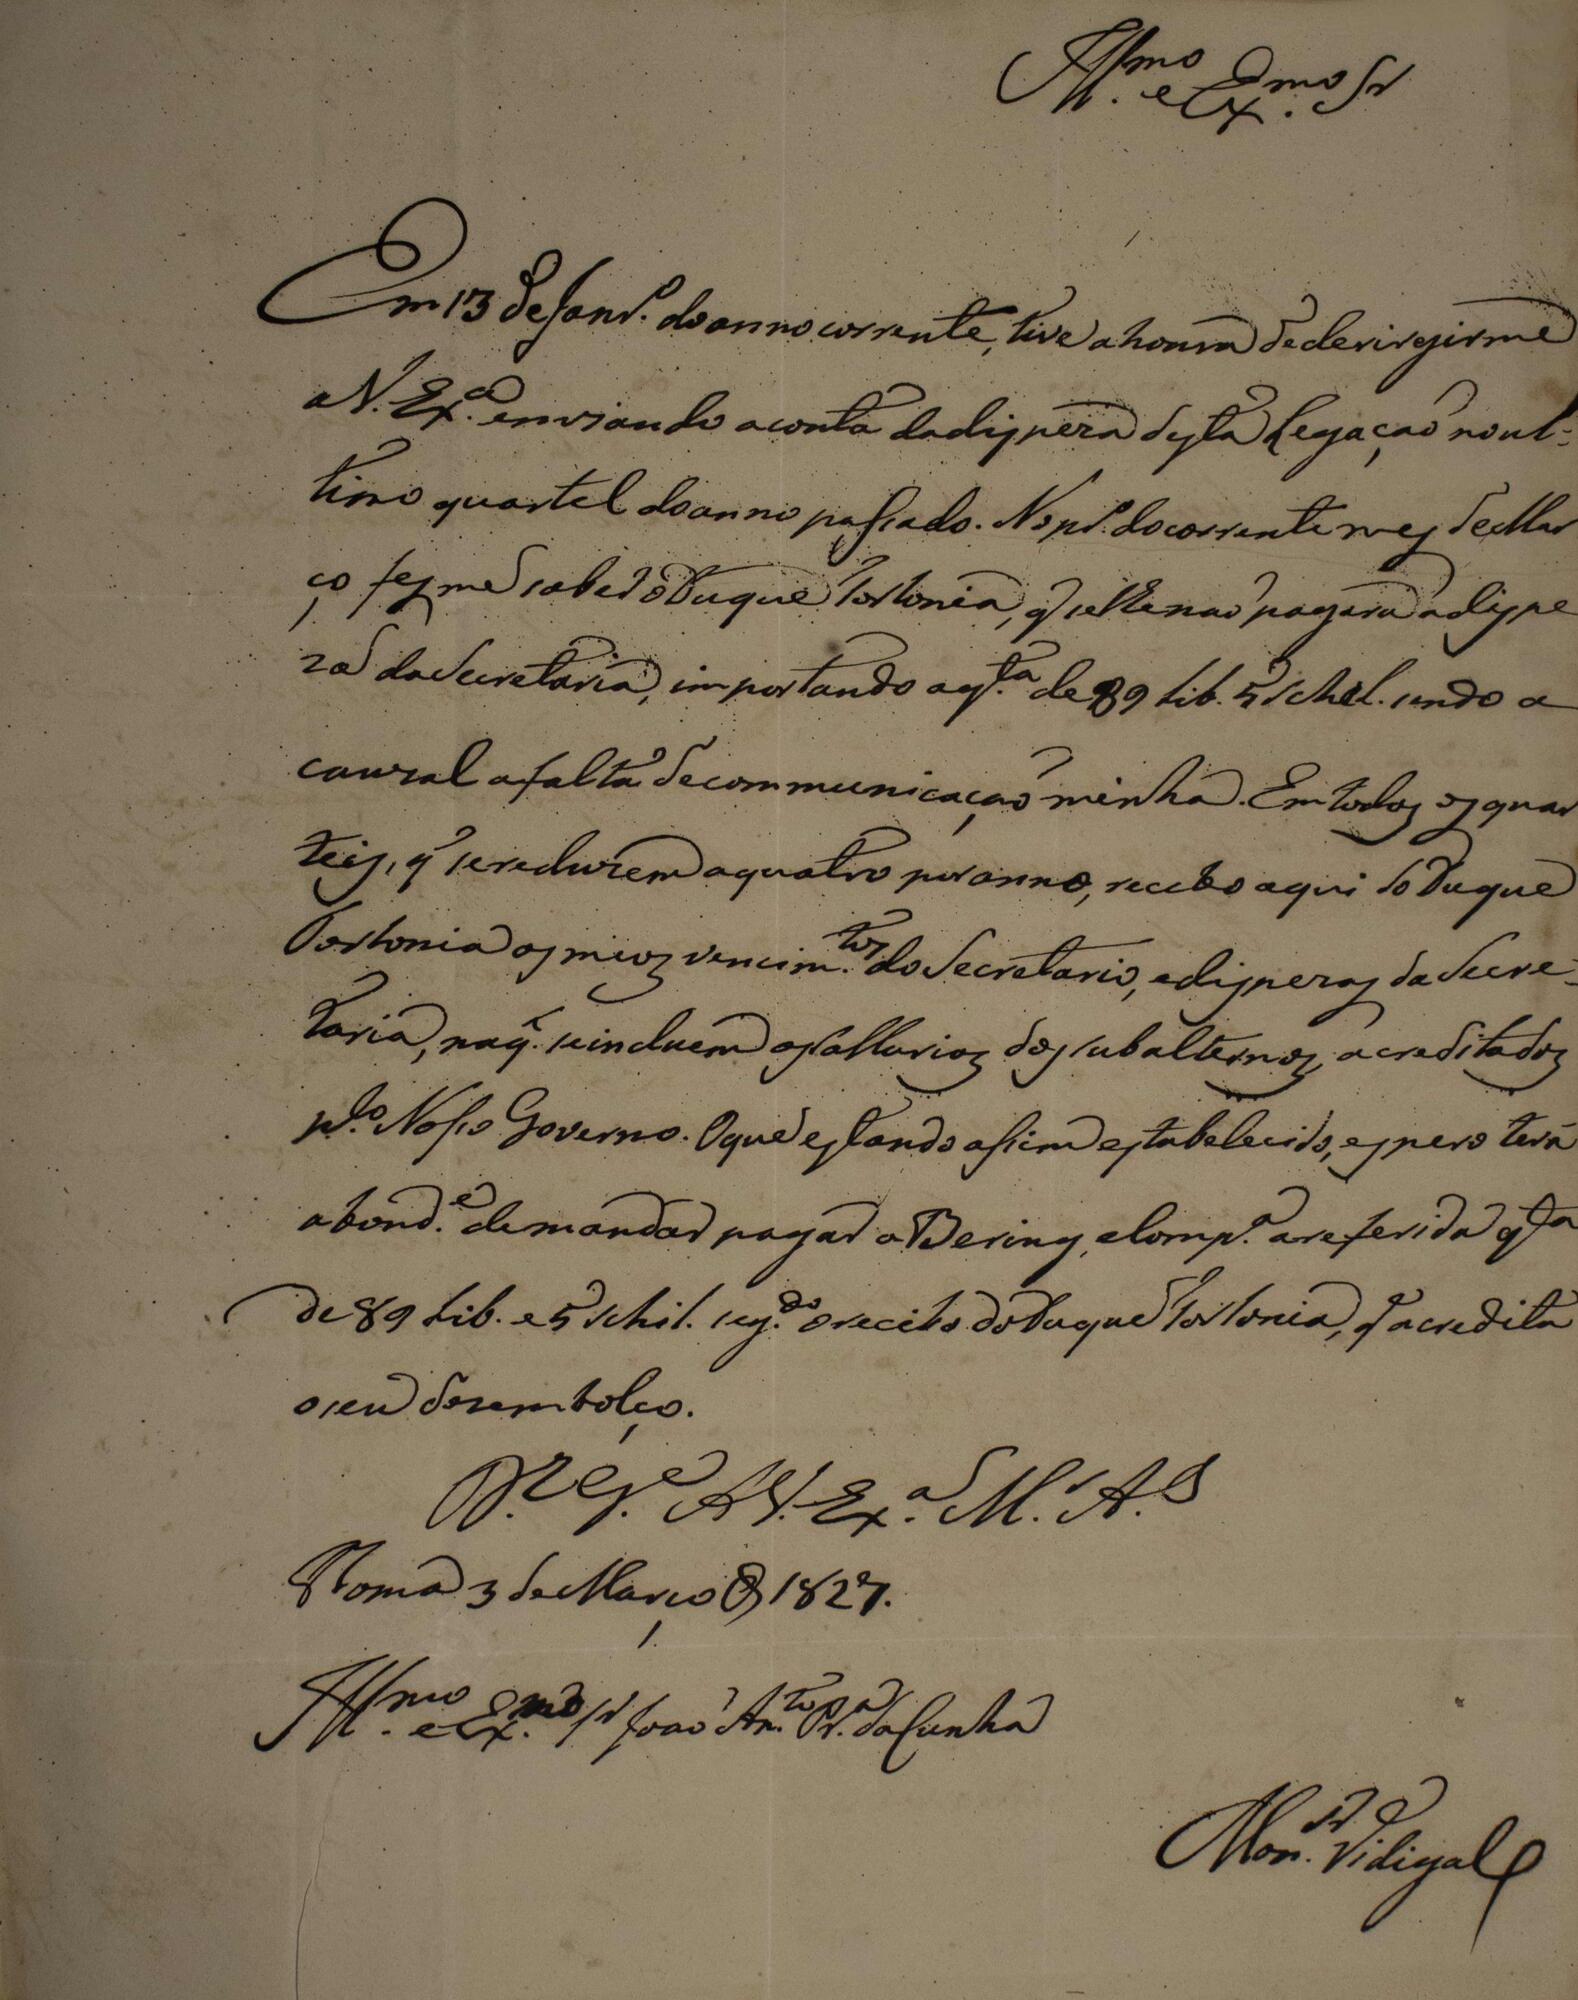 Ill.mo e Ex.mo Sr
Em 13 de Janr.o do anno corrente, tive a honra de derirgirme
a V. Ex.a enviando a conta da dispeza desta Legação no ul-
timo quartel do anno passado. No pr.o do corrente mes de Mar
ço fez me saber o Duque Torlonia, q̃ se lhe não pagára a dispe
za da Secretaria, importando a q.tia de 89 Lib. 5 schel. sendo a
causal a falta de communicação minha. Em todos os quar
teis, q̃ se reduzem a quatro por anno, recebo aqui do Duque
Torlonia os meos vencim.tos do Secretario, e dispezas da Secre-
taria, na q.l se incluem os sallarios dos subalternos, acreditados
p.lo Nosso Governo. O que estando assim estabelecido, espero terá
a bond.e de mandar pagar a Bering, e Comp.a a referida q.tia
de 89 Lib. e 5 schil. seg.do o recibo do Duque Torlonia, q̃ acredita
o seu desembolço.
D.s G.e A V. Ex.a M.s A.s
Roma 3 de Março de 1827.
Ill.mo e Ex.mo Sr João Ant.o Pr.a da Cunha
Mon.sr Vidigal